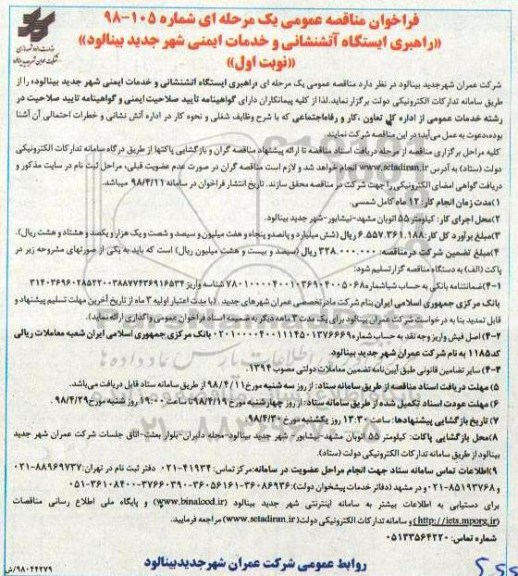 فراخوان مناقصه عمومی یک مرحله ای شماره ۱۰۵-۹۸
«راهبری ایستگاه آتشنشانی و خدمات ایمنی شهر جدید بینالود»
«نوبت اول»
شرکت عمران شهرجدید بینالود در نظر دارد مناقصه عمومی یک مرحله ای «راهبری ایستگاه آتشنشانی و خدمات ایمنی شهر جدید بینالود» را از
طریق سامانه تدارکات الکترونیکی دولت برگزار نماید. لذا از کلیه پیمانکاران دارای گواهینامه تأیید صلاحیت ایمنی و گواهینامه تایید صلاحیت در
رشته خدمات عمومی از اداره کل تعاون ،کار و رفاه اجتماعی که با شرح وظایف شغلی و نحوه کار در اداره آتش نشانی و خطرات احتمالی آن آشنا
بوده،دعوت به عمل می‌آید؛ در این مناقصه شرکت نمایند.
کلیه مراحل برگزاری مناقصه از مرحله دریافت اسناد مناقصه تا ارائه پیشنهاد مناقصه گران و بازگشایی پاکتها از طریق درگاه سامانه تدارکات الکترونیکی
دولت (ستاد) به آدرس www.setadiran.ir انجام خواهد شد و لازم است مناقصه گران در صورت عدم عضویت قبلی، مراحل ثبت نام در سایت مذکور و
دریافت گواهی امضای الکترونیکی را جهت شرکت در مناقصه محقق سازند. تاریخ انتشار فراخوان در سامانه ۹۸/۴/۱۱ میباشد.
۱)مدت زمان انجام کار: ۱۲ ماه کامل شمسی.
۲)محل اجرای کار: کیلومتر ۵۵ اتوبان مشهد-نیشابور-شهر جدید بینالود.
۳)مبلغ برآورد کل کار: ۶.۵۵۷.۳۶۱.۱۸۸ ریال (شش میلیارد و پانصدو پنجاه و هفت میلیون و سیصد و شصت و یک هزار و یکصد و هشتاد و هشت ریال).
۴)مبلغ تضمین شرکت در مناقصه: ۳۲۸.۰۰۰.۰۰۰ ریال (سیصد و بیست و هشت میلیون ریال) است که باید به یکی از صورتهای مشروحه زیر در
پاکت (الف) به دستگاه مناقصه گزار تسلیم شود:
۴-۱)ضمانتنامه بانکی به حساب شباشماره ۷۸۰۱۰۰۰۰۴۰۰۱۰۳۶۹۰۴۰۰۵۰۶۸ شناسه واریز ۳۱۴۰۳۶۹۶۰۲۸۵۲۲۰۰۳۸۸۷۷۴۳۶۹۱۶۵۳۴
بانک مرکزی جمهوری اسلامی ایران بنام شرکت مادر تخصصی عمران شهرهای جدید . (با مدت اعتبار اولیه ۳ ماه از تاریخ آخرین مهلت تسلیم پیشنهاد و
قابل تمدید بنا به درخواست شرکت عمران بینالود برای یک مدت ۳ ماهه دیگر به ضمیمه اسناد فراخوان عمومی واگذاری ارائه نماید).
۴-۲) اصل فیش واریز وجه نقد به حساب شماره ۰۲۰۱۰۰۰۰۴۰۰۱۱۱۴۵۰۱۳۷۶۶۶۹ بانک مرکزی جمهوری اسلامی ایران شعبه معاملات ریالی
کد ۱۱۸۵ به نام شرکت عمران شهر جدید بینالود.
۴-۳) سایر تضامین قانونی طبق آیین‌نامه تضمین معاملات دولتی مصوب ۱۳۹۴.
۵) مهلت دریافت اسناد مناقصه از طریق سامانه ستاد: از روز سه شنبه مورخ ۹۸/۴/۱۱ از طریق سامانه ستاد قابل دریافت می‌باشد.
۶) مهلت عودت اسناد تکمیل شده از طریق سامانه ستاد: از روز چهارشنبه مورخ ۹۸/۴/۱۹ ساعت ۱۹:۰۰ روز شنبه مورخ ۹۸/۴/۲۹.
۷) تاریخ بازگشایی پیشنهادها: ساعت ۱۳:۳۰ روز یکشنبه مورخ ۹۸/۴/۳۰.
۸)محل بازگشایی پاکات: کیلومتر ۵۵ اتوبان مشهد-نیشابور- شهر جدید بینالود-محله دلبران-بلوار بعثت-اتاق جلسات شرکت عمران شهر جدید
بینالود از طریق سامانه تدارکات الکترونیکی دولت (ستاد).
۹)اطلاعات تماس سامانه ستاد جهت انجام مراحل عضویت در سامانه:مرکز تماس: ۴۱۹۳۴-۰۲۱ دفتر ثبت نام در تهران:۸۸۹۶۹۷۳۷-۰۲۱
و ۸۵۱۹۳۷۶۸-۰۲۱ و در مشهد (دفاتر خدمات پیشخوان دولت): ۳۶۰۸۶۹۳۶-۳۶۰۵۶۱۶۱-۳۷۶۶۰۳۹۰-۳۶۱۰۸۴۰۰-۰۵۱
برای دستیابی به اطلاعات بیشتر به سامانه اینترنتی شهر جدید بینالود (www.binalood.ir) و پایگاه ملی اطلاع رسانی مناقصات
(http://iets.mporg.ir) و سامانه تدارکات الکترونیکی دولت (www.setadiran.ir) مراجعه فرمایید.
شماره تماس: ۰۵۱۳۳۵۶۴۲۲۰
روابط عمومی شرکت عمران شهرجدیدبینالود
۹۸۰۴۴۲۷۹/ش